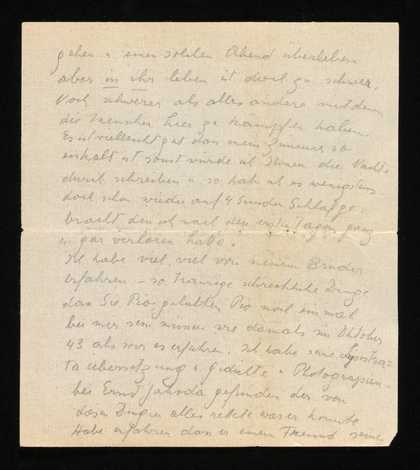 gehen u einen solchen Abend überleben
aber in ihr leben ist doch zu schwer.
Noch schwerer als alles andere mit dem
die Menschen hier zu kämpfen haben.
Es ist vielleicht gut dass mein Zimmer so
eiskalt ist sonst würde ich Ihnen die Nacht
durch schreiben u. so hab ich es wenigstens
doch schon wieder auf 4 Stunden Schlaf ge-
bracht den ich nach den ersten Tagen ganz
u. gar verloren habe.
Ich habe viel, viel von meinem Bruder
erfahren – so traurige schreckliche Dinge
dass Sie Pio geliebter Pio noch einmal
bei mir sein müssen wie damals im Oktober
43 als wir es erfuhren. Ich habe seine
übersetzung u. Gedichte u. Photographien
bei Ernst Jahoda gefunden der von
diesen Dingen alles rettete was er konnte
Habe erfahren dass er einem Freund seine